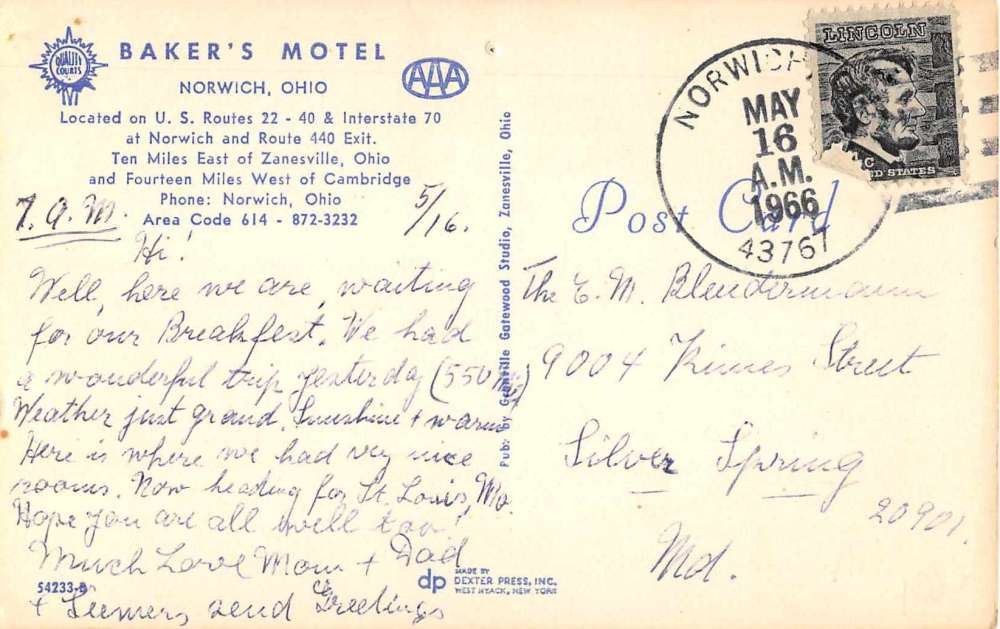 QUALITY COURTS
BAKER'S MOTEL
NORWICH, OHIO
AAA
Located on U. S. Routes 22 - 40 & Interstate 70
at Norwich and Route 440 Exit.
Ten Miles East of Zanesville, Ohio
and Fourteen Miles West of Cambridge
Phone: Norwich, Ohio
Area Code 614 - 872-3232
7. A.M.
5/16.
Hi!
Well, here we are, waiting
for our Breakfest. We had
a wonderful trip yesterday (550
Weather just grand. Sunshine + warm
Here is where we had very nice
rooms. Now heading for St. Louis, Mo.
Hope you are all well too!
Much Love Mom + Dad
+ send Greetings
54233-B
Pub. by Granville Gatewood Studio, Zanesville, Ohio
dp MADE BY
DEXTER PRESS, INC.
WEST NYACK, NEW YORK
Post Card
LINCOLN
ED STATES
NORWICH
MAY
16
A.M.
1966
43767
The E. M. Blendermann
9004 Street
Silver Spring
20901.
Md.